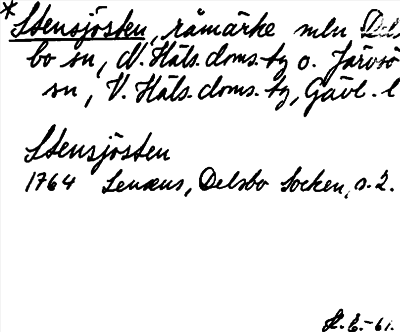 * Stensjösten, råmärke mln Dels
bo sn, N. Häls. doms.-tg o. Järvsö
sn, V. Häls. doms.-tg, Gävl. l
Stensjösten
1764 Lenæus, Delsbo Socken, s. 2.
H. E. -61.